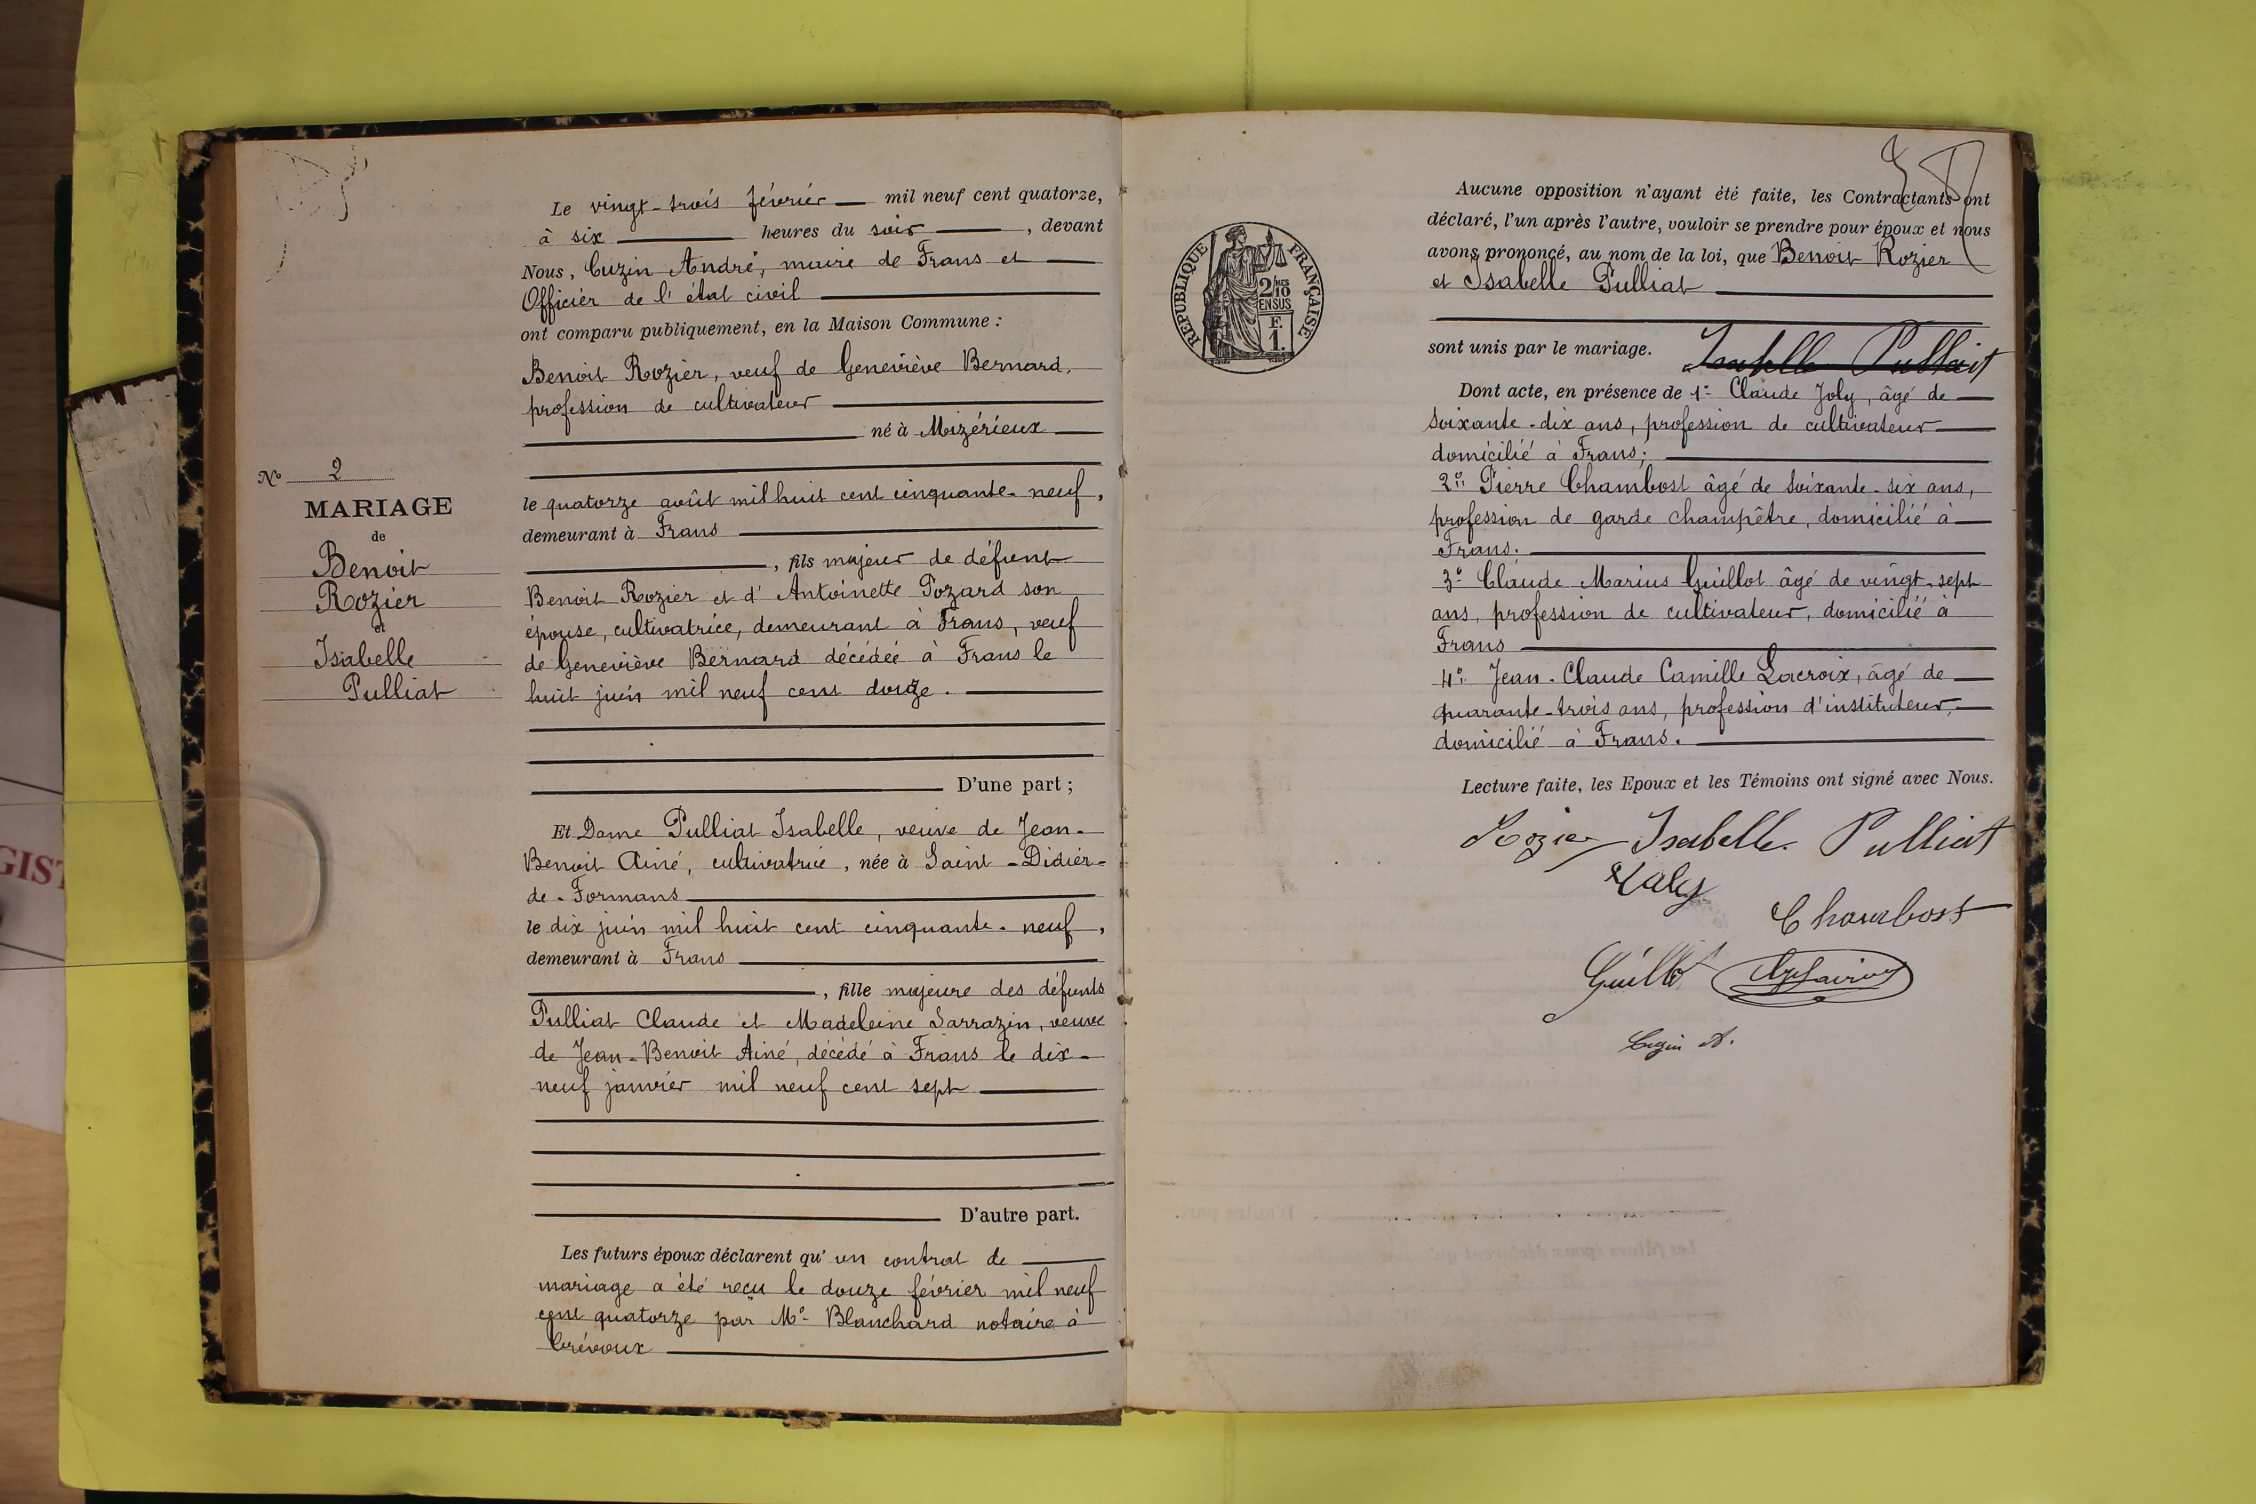 Le vingt-trois février mil neuf cent quatorze,
à six heures du soir , devant
Nous, Cuzin André, maire de Frans et
Officier de l'état civil
ont comparu publiquement, en la Maison Commune :
Benoit Rozier, veuf de Geneviève Bernard,
profession de cultivateur
né à Mizérieux
le quatorze août mil huit cent cinquante-neuf,
demeurant à Frans
, fils majeur de défunt
Benoit Rozier et d'Antoinette Pozard son
épouse, cultivatrice, demeurant à Frans, veuf
de Geneviève Bernard décédée à Frans le
huit juin mil neuf cent douze.
D'une part ;
Nº 2
MARIAGE
de
Benoit
Rozier
et
Isabelle
Pulliat
Et Dame Pulliat Isabelle, veuve de Jean-
Benoit Ainé, cultivatrice, née à Saint-Didier-
de-Formans
le dix juin mil huit cent cinquante-neuf,
demeurant à Frans
, fille majeure des défunts
Pulliat Claude et Madeleine Sarrazin, veuve
de Jean-Benoit Ainé, décédé à Frans le dix-
neuf janvier mil neuf cent sept
D'autre part.
Les futurs époux déclarent qu'un contrat de
mariage a été reçu le douze février mil neuf
cent quatorze par Mº Blanchard notaire à
Trévoux
REPUBLIQUE FRANÇAISE
2/10 EN SUS
F. 1.
Aucune opposition n'ayant été faite, les Contractants ont
déclaré, l'un après l'autre, vouloir se prendre pour époux et nous
avons prononcé, au nom de la loi, que Benoit Rozier
et Isabelle Pulliat
sont unis par le mariage. Isabelle Pulliat
Dont acte, en présence de 1º Claude Joly, âgé de
soixante-dix ans, profession de cultivateur
domicilié à Frans;
2º Pierre Chambost âgé de soixante-six ans,
profession de garde champêtre, domicilié à
Frans.
3º Claude Marius Guillot âgé de vingt-sept
ans, profession de cultivateur, domicilié à
Frans
4º Jean-Claude Camille Lacroix, âgé de
quarante-trois ans, profession d'instituteur,
domicilié à Frans.
Lecture faite, les Epoux et les Témoins ont signé avec Nous.
Rozier Isabelle Pulliat
Chambost
Guillot
Cuzin A.
GIST